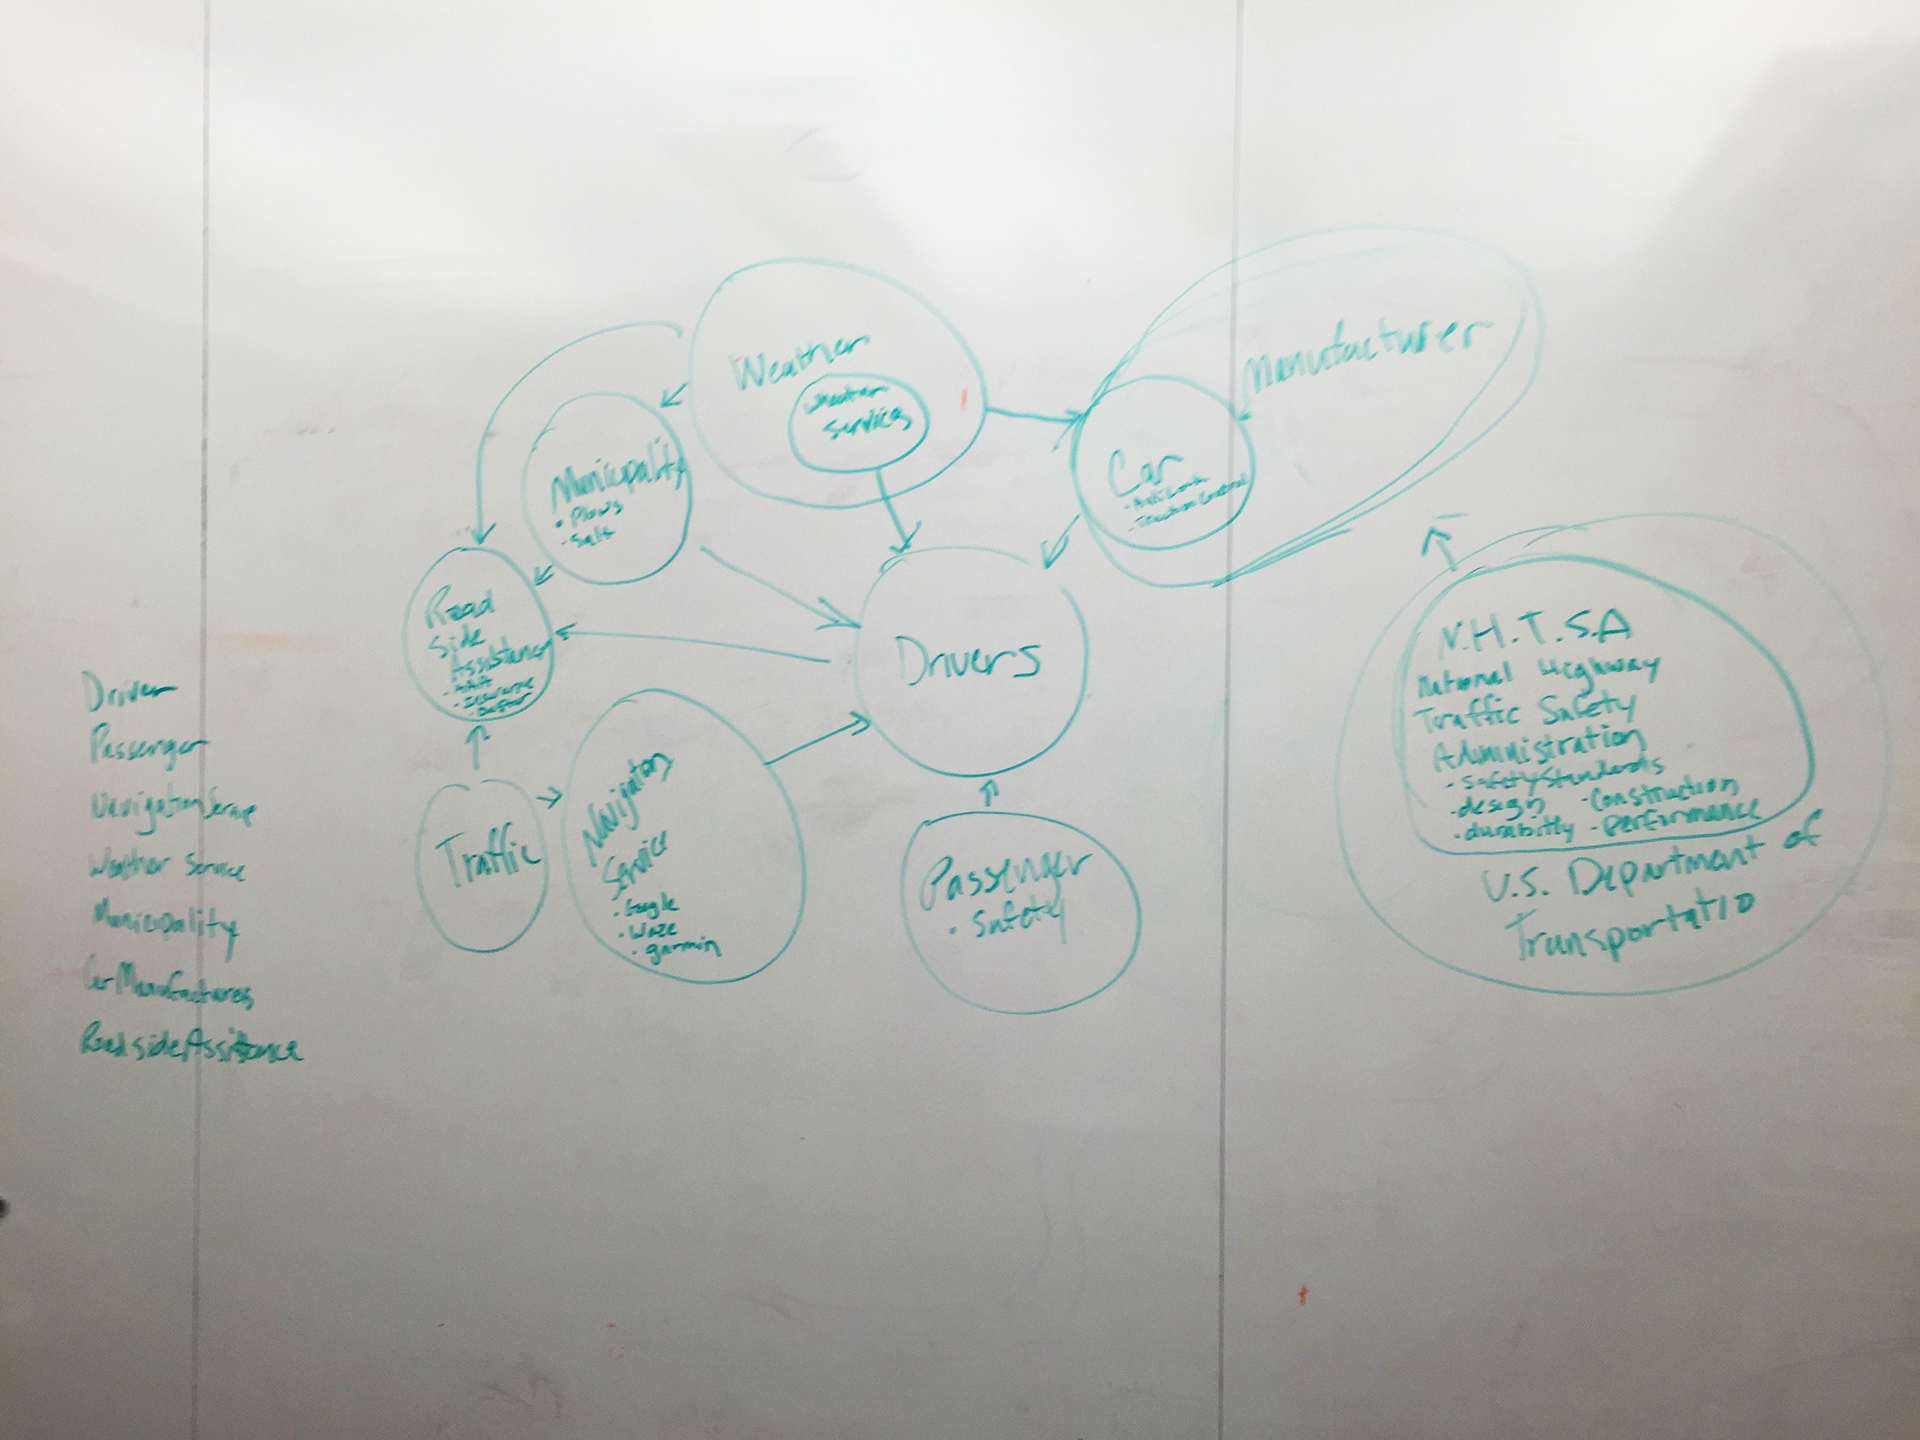 Weather
Weather
Services
Manufacturer
Municipality
• Plows
• Salt
Car
• Traction Control
Road
Side
Assistance
• AAA
• Insurance
Drivers
N.H.T.S.A
National Highway
Traffic Safety
Administration
• Safety Standards
• design • Construction
• durability • performance
U.S. Department of
Transportatio
Driver
Passenger
Navigation Service
Weather Service
Municipality
Car Manufactures
Roadside Assistance
Traffic
Navigation
Service
• Google
• Waze
• garmin
Passenger
• Safety